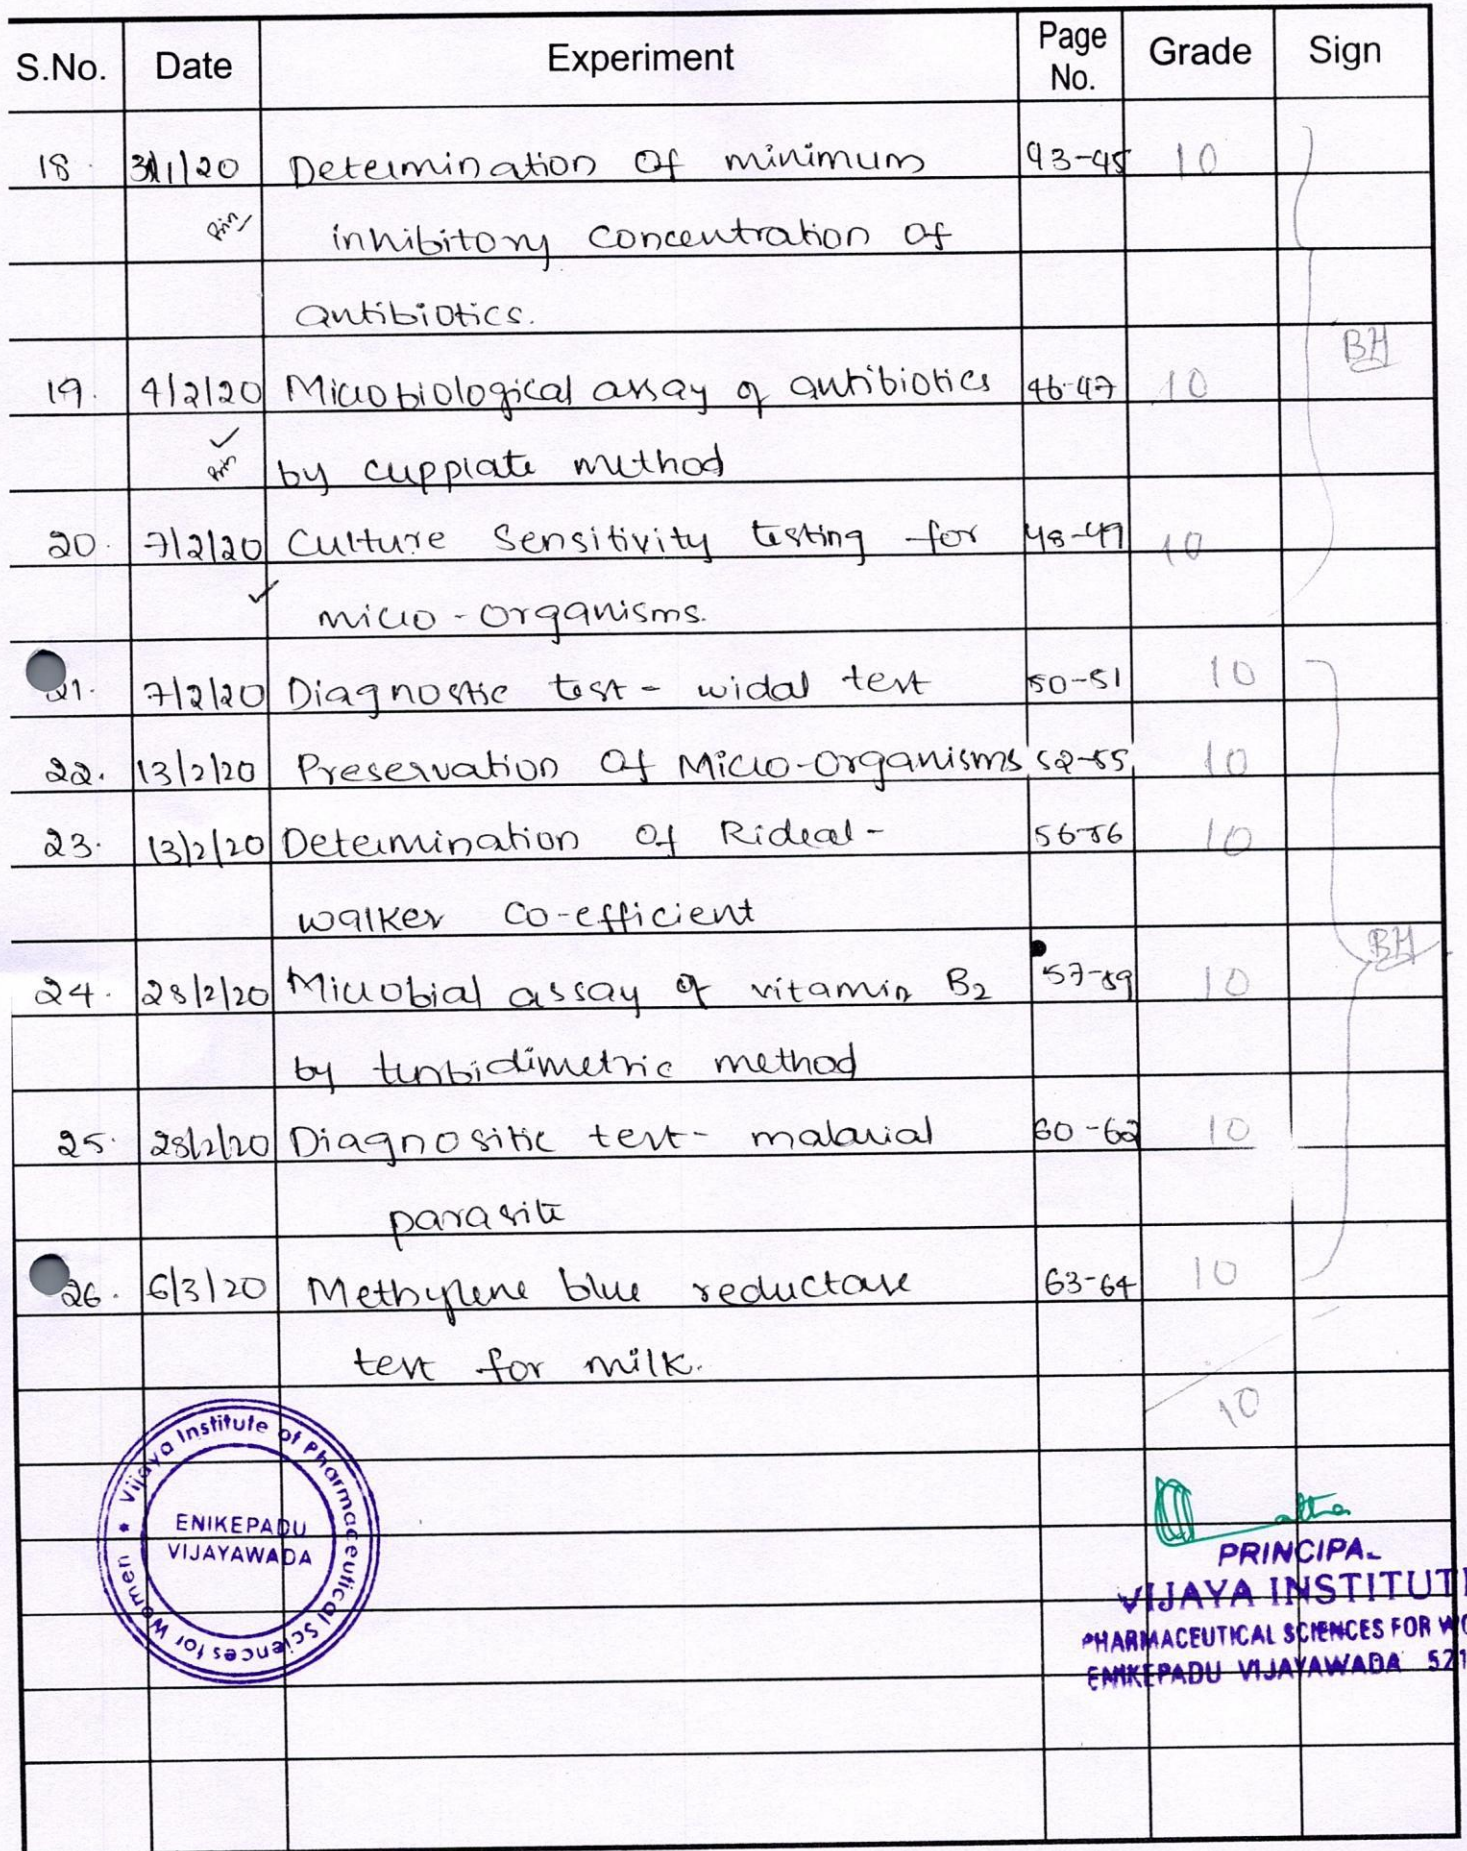 S.No. Date Experiment Page No. Grade Sign
18. 31/1/20 Determination Of minimum 43-45 10
inhibitory concentration of
antibiotics.
BH
19. 4/2/20 Microbiological assay of antibiotics 46-47 10
by cupplate method
20. 7/2/20 Culture Sensitivity testing for 48-49 10
micro-organisms.
21. 7/2/20 Diagnostic test - widal test 50-51 10
22. 13/2/20 Preservation Of Micro-organisms 52-55 10
23. 13/2/20 Determination Of Rideal- 56-56 10
walker Co-efficient
BH
24. 28/2/20 Microbial assay of vitamin B2 57-59 10
by turbidimetric method
25. 28/2/20 Diagnositic test- malarial 60-62 10
parasite
26. 6/3/20 Methylene blue reductase 63-64 10
test for milk.
10
Vijaya Institute of Pharmaceutical Sciences for Women
ENIKEPADU
VIJAYAWADA
PRINCIPAL
VIJAYA INSTITUT
PHARMACEUTICAL SCIENCES FOR WO
ENIKEPADU VIJAYAWADA 521